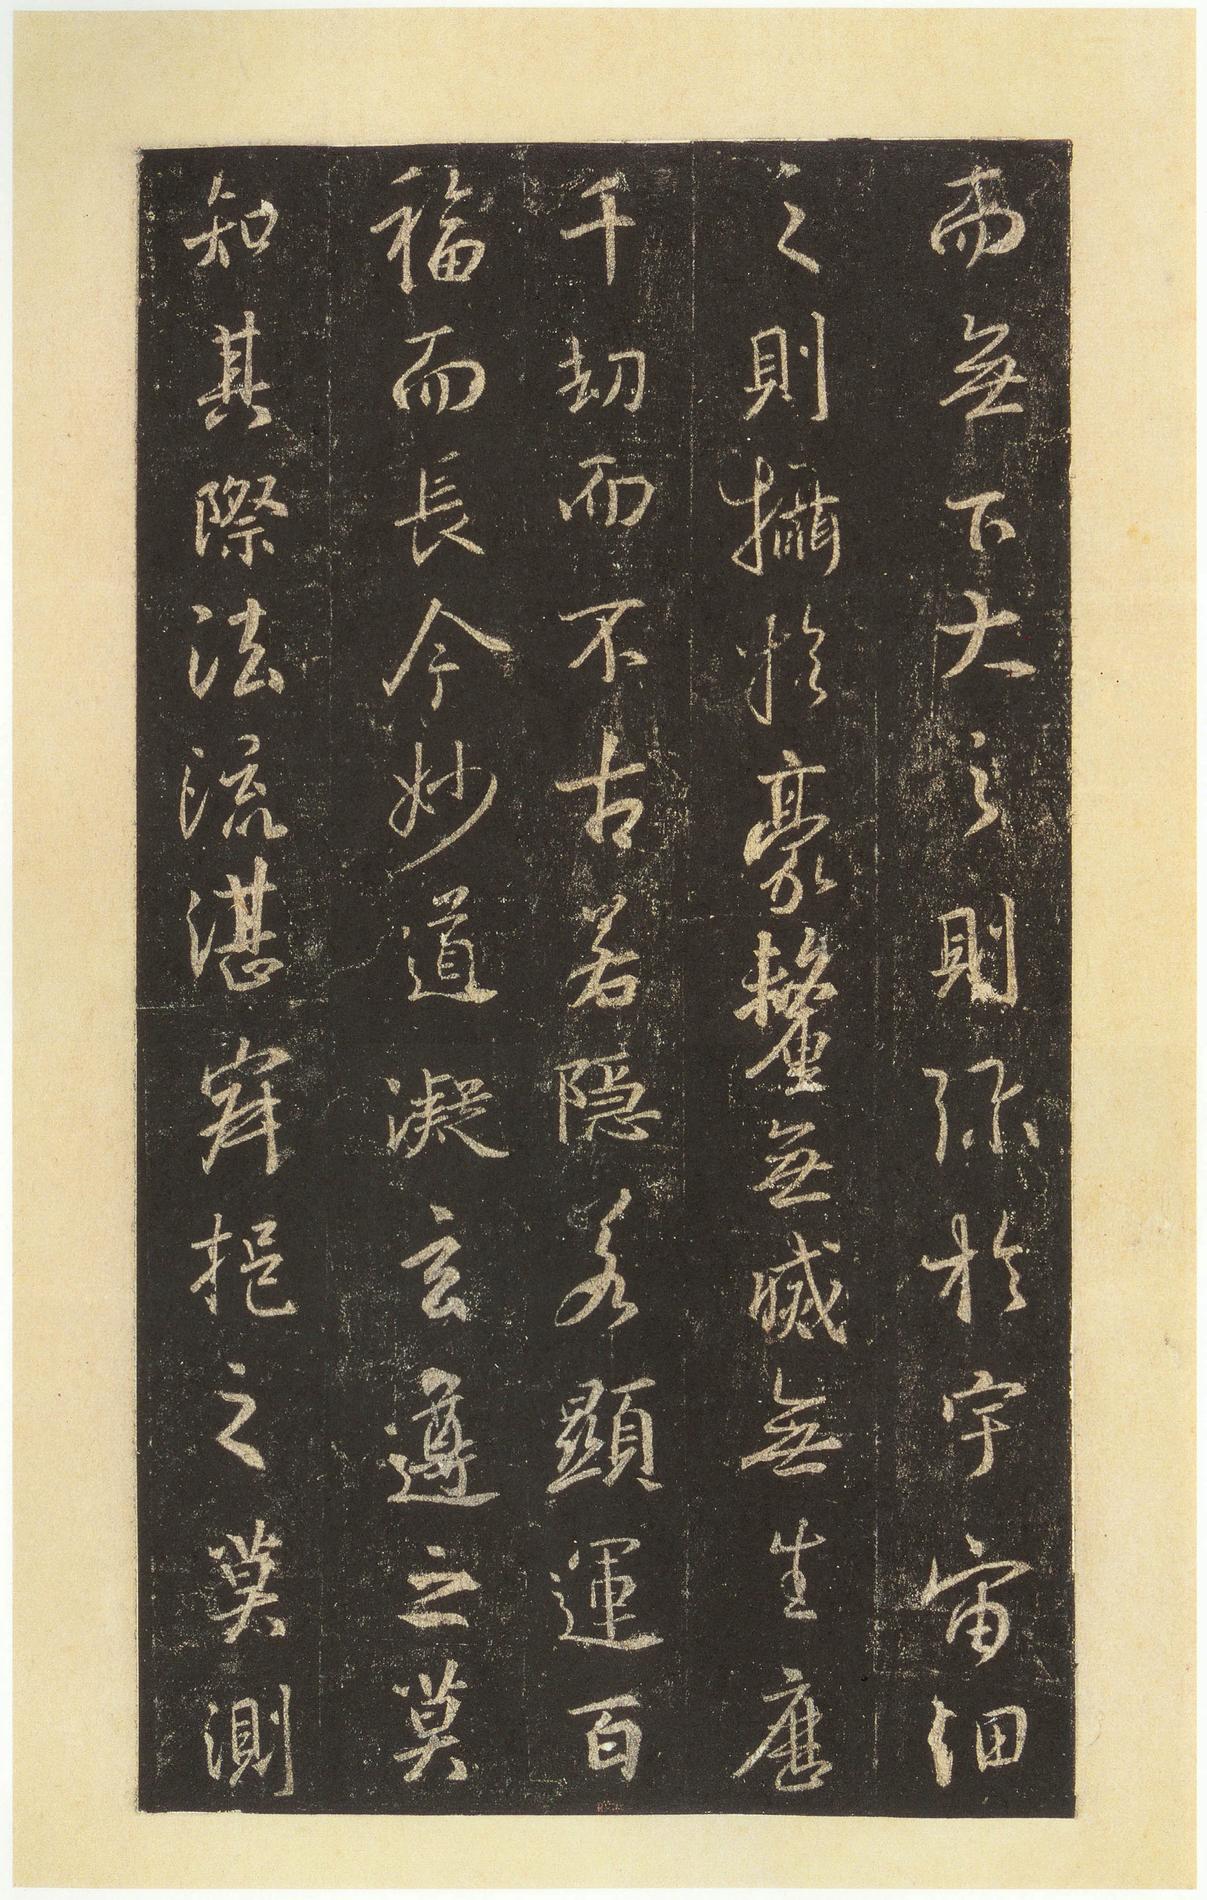 而無下大之則弥於宇宙細
之則攝於豪釐無滅無生歷
千劫而不古若隐若顯運百
福而長今妙道凝玄遵之莫
知其際法流湛寂挹之莫測